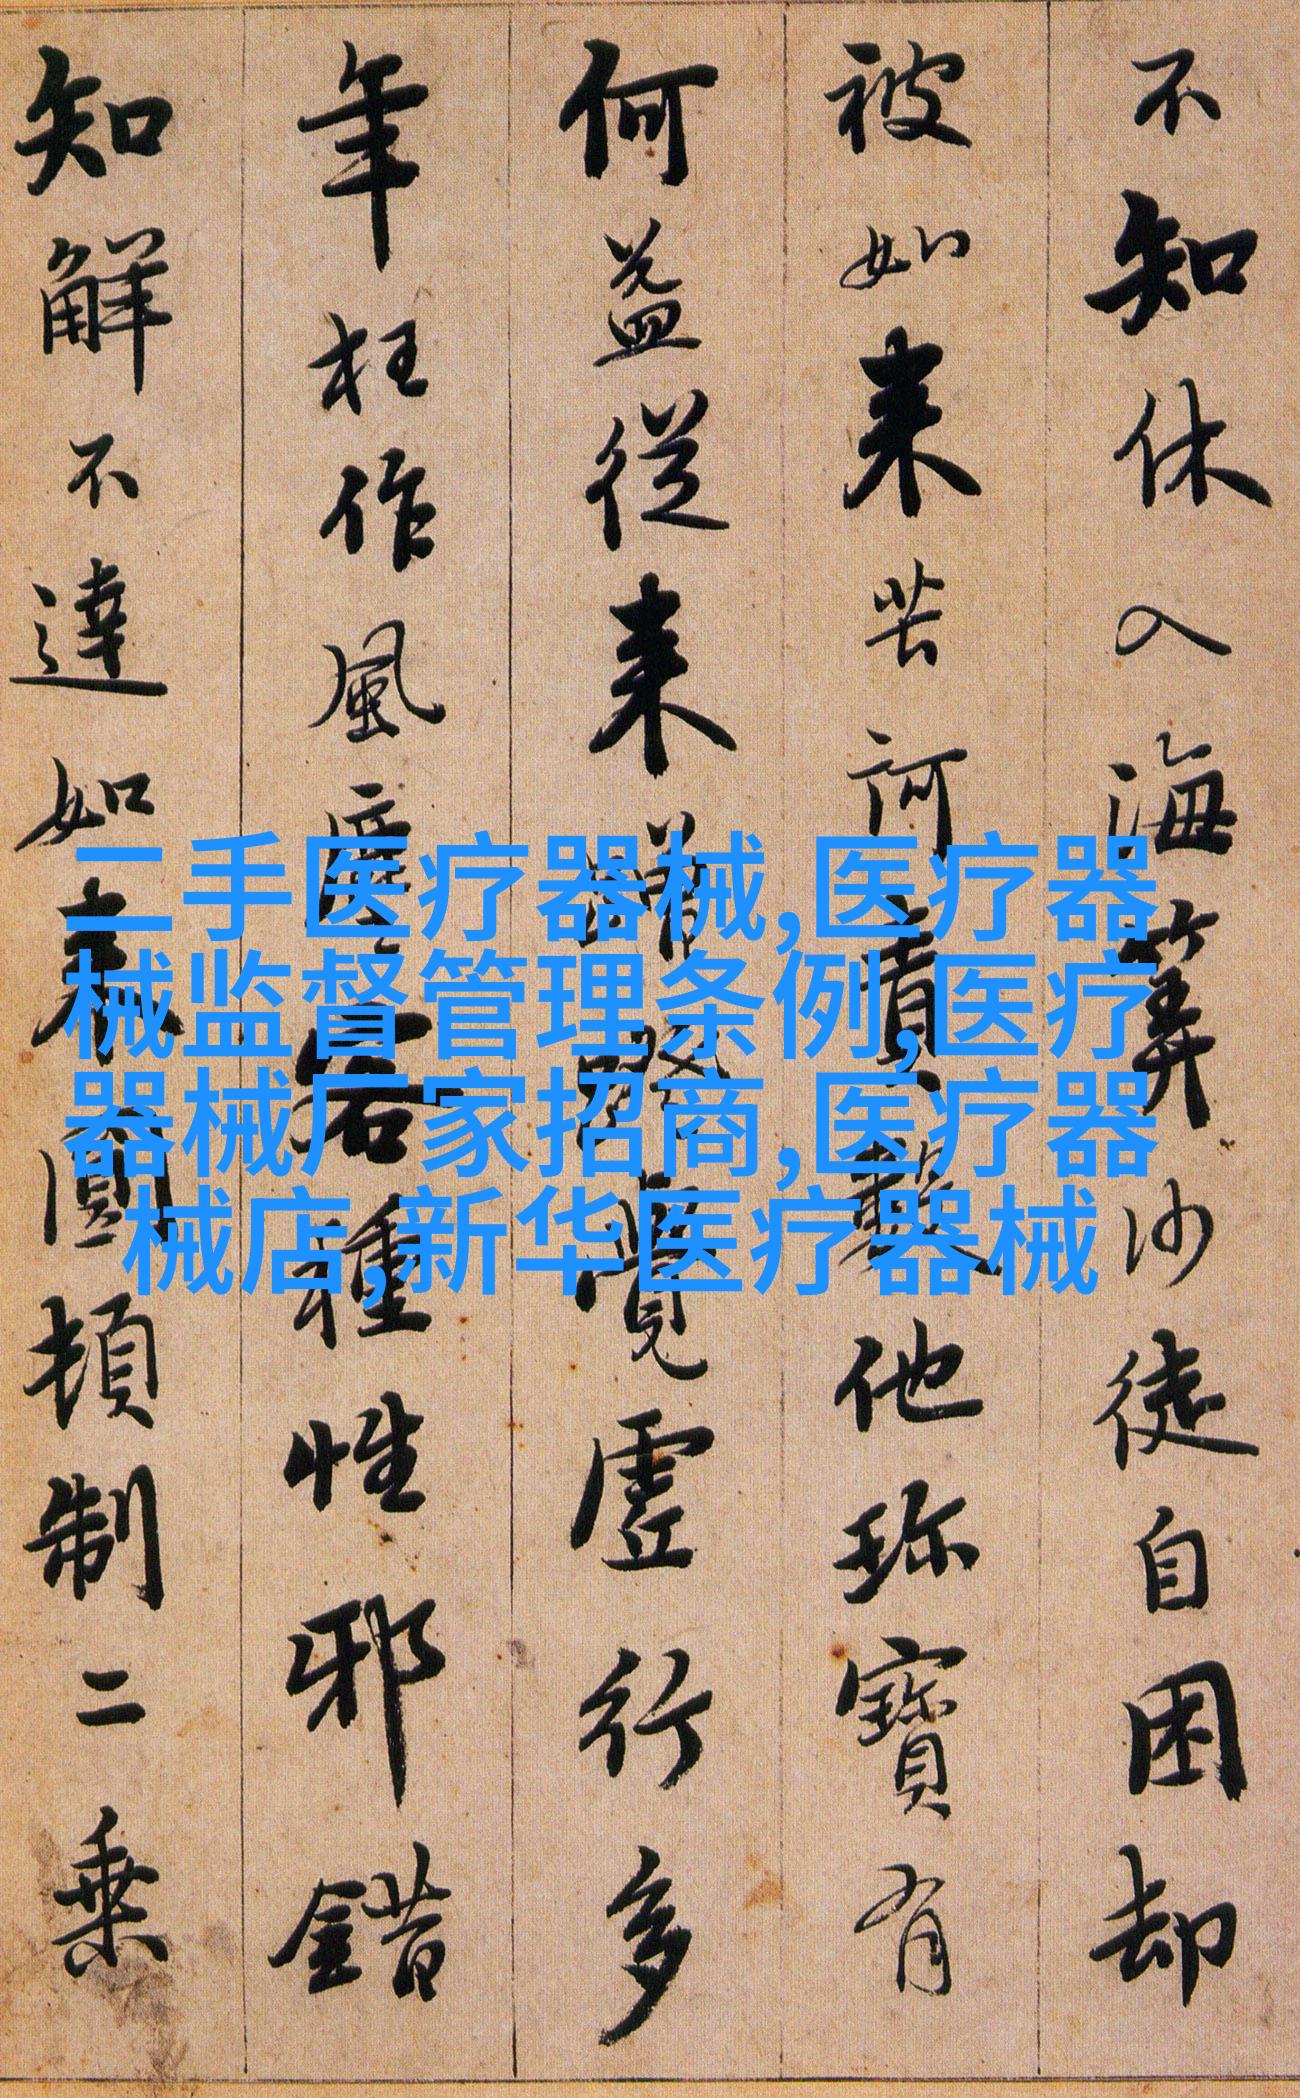 不知休入海筭沙徒自困却
被如来苦訶責數他珎寶有
何益從来蹭蹬覺虛行多
年枉作風塵客種性邪錯
知解不達如来圓頓制二乗
二手医疗器械,医疗器
械监督管理条例,医疗
器械厂家招商,医疗器
械店,新华医疗器械